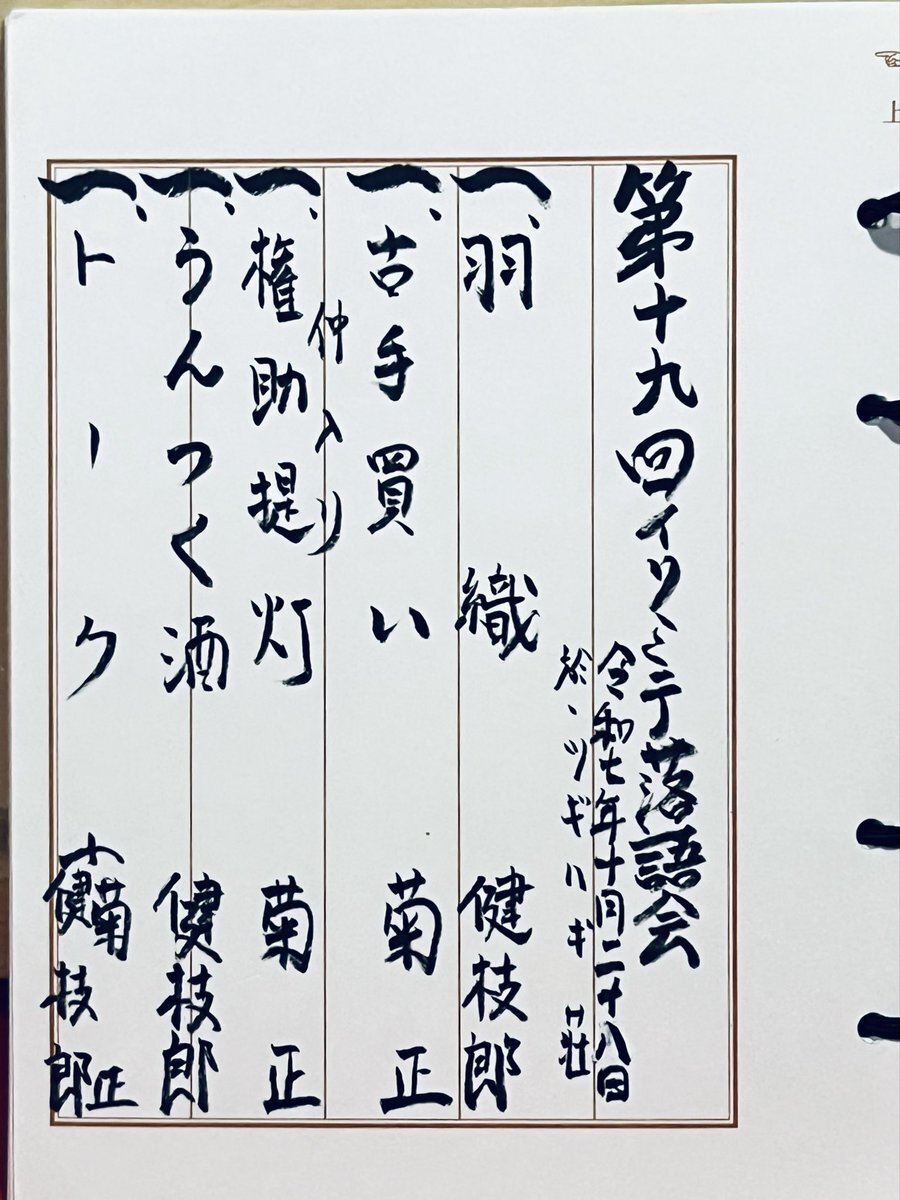 第十九回 落語会
令和七年十月二十八日
於、ツギハギ荘
一、羽織 健枝郎
一、古手買い 菊正
仲入り
一、権助提灯 菊正
一、うんつく酒 健枝郎
一、トーク 菊正
健枝郎
上